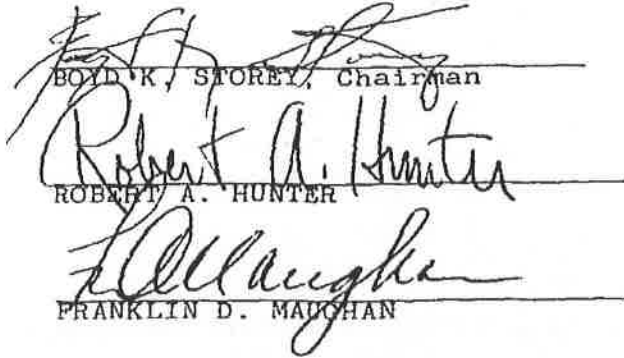 BOYD K. STOREY, Chairman
Robert A. Hunter
ROBERT A. HUNTER
FRANKLIN D. MAUGHAN